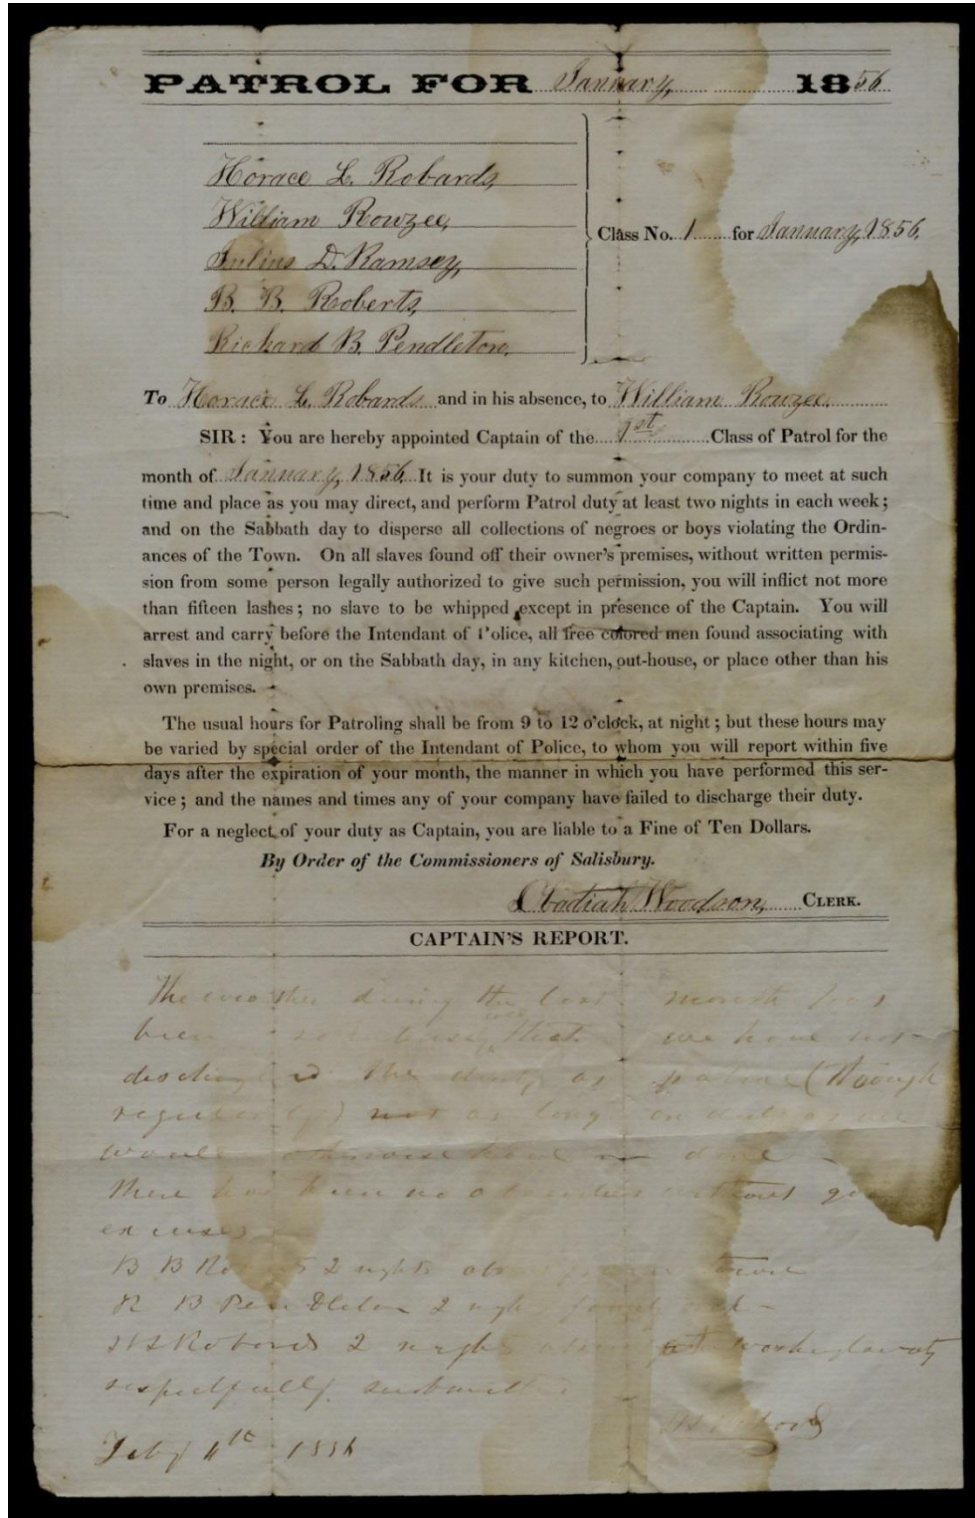 PATROL FOR January, 1856
Horace L. Robards,
William Rowzee,
Julius D. Ramsey,
B. B. Roberts,
Richard B. Pendleton.
Class No. 1 for January, 1856.
To Horace L. Robards and in his absence, to William Rowzee.
SIR : You are hereby appointed Captain of the 1st Class of Patrol for the
month of January, 1856. It is your duty to summon your company to meet at such
time and place as you may direct, and perform Patrol duty at least two nights in each week ;
and on the Sabbath day to disperse all collections of negroes or boys violating the Ordin-
ances of the Town. On all slaves found off their owner's premises, without written permis-
sion from some person legally authorized to give such permission, you will inflict not more
than fifteen lashes ; no slave to be whipped except in presence of the Captain. You will
arrest and carry before the Intendant of Police, all free colored men found associating with
slaves in the night, or on the Sabbath day, in any kitchen, out-house, or place other than his
own premises.
The usual hours for Patroling shall be from 9 to 12 o'clock, at night ; but these hours may
be varied by special order of the Intendant of Police, to whom you will report within five
days after the expiration of your month, the manner in which you have performed this ser-
vice ; and the names and times any of your company have failed to discharge their duty.
For a neglect of your duty as Captain, you are liable to a Fine of Ten Dollars.
By Order of the Commissioners of Salisbury.
Obadiah Woodson, CLERK.
CAPTAIN'S REPORT.
The weather during the last month has
been that we have not
discharged the duty of (though
not as long on
would otherwise have done
There has been no without good
excuses
B B Roberts 2 nights town
R B Pendleton 2 nights family sick
H L Robards 2 nights Washington city
respectfully submitted
Feby 4th 1856